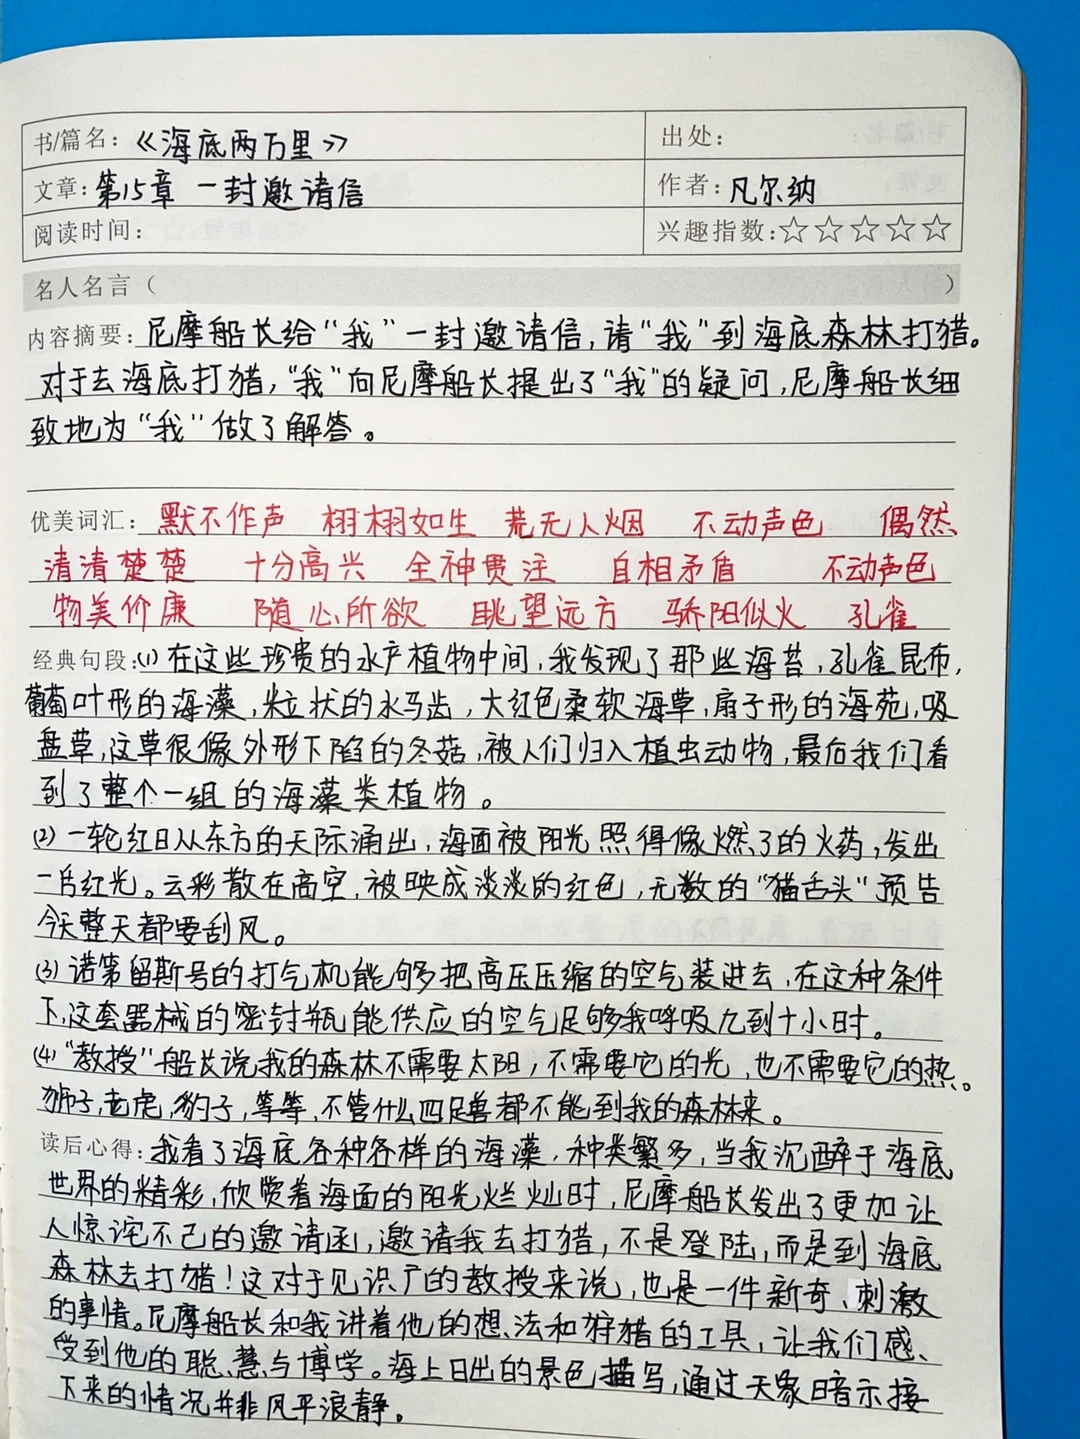 书/篇名：《海底两万里》 出处：
文章：第15章 一封邀请信 作者：凡尔纳
阅读时间： 兴趣指数：☆☆☆☆☆
名人名言（ ）
内容摘要：尼摩船长给“我”一封邀请信，请“我”到海底森林打猎。
对于去海底打猎，“我”向尼摩船长提出了“我”的疑问，尼摩船长细
致地为“我”做了解答。
优美词汇：默不作声 栩栩如生 荒无人烟 不动声色 偶然
清清楚楚 十分高兴 全神贯注 自相矛盾 不动声色
物美价廉 随心所欲 眺望远方 骄阳似火 孔雀
经典句段：(1)在这些珍贵的水产植物中间，我发现了那些海苔，孔雀昆布，
葡萄叶形的海藻，粒状的水马齿，大红色柔软海草，扇子形的海苑，吸
盘草，这草很像外形下陷的冬菇，被人们归入植虫动物，最后我们看
到了整个一组的海藻类植物。
(2)一轮红日从东方的天际涌出，海面被阳光照得像燃了的火药，发出
一片红光。云彩散在高空，被映成淡淡的红色，无数的“猫舌头”预告
今天整天都要刮风。
(3)诺第留斯号的打气机能够把高压压缩的空气装进去，在这种条件
下，这套器械的密封瓶能供应的空气足够我呼吸九到十小时。
(4)“教授”船长说，我的森林不需要太阳，不需要它的光，也不需要它的热。
狮子，老虎，豹子，等等，不管什么四足兽都不能到我的森林来。
读后心得：我看了海底各种各样的海藻，种类繁多，当我沉醉于海底
世界的精彩，欣赏着海面的阳光烂灿时，尼摩船长发出了更加让
人惊诧不已的邀请函，邀请我去打猎，不是登陆，而是到海底
森林去打猎！这对于见识广的教授来说，也是一件新奇、刺激
的事情。尼摩船长和我讲着他的想法和狩猎的工具，让我们感
受到他的聪慧与博学。海上日出的景色描写，通过天象暗示接
下来的情况并非风平浪静。